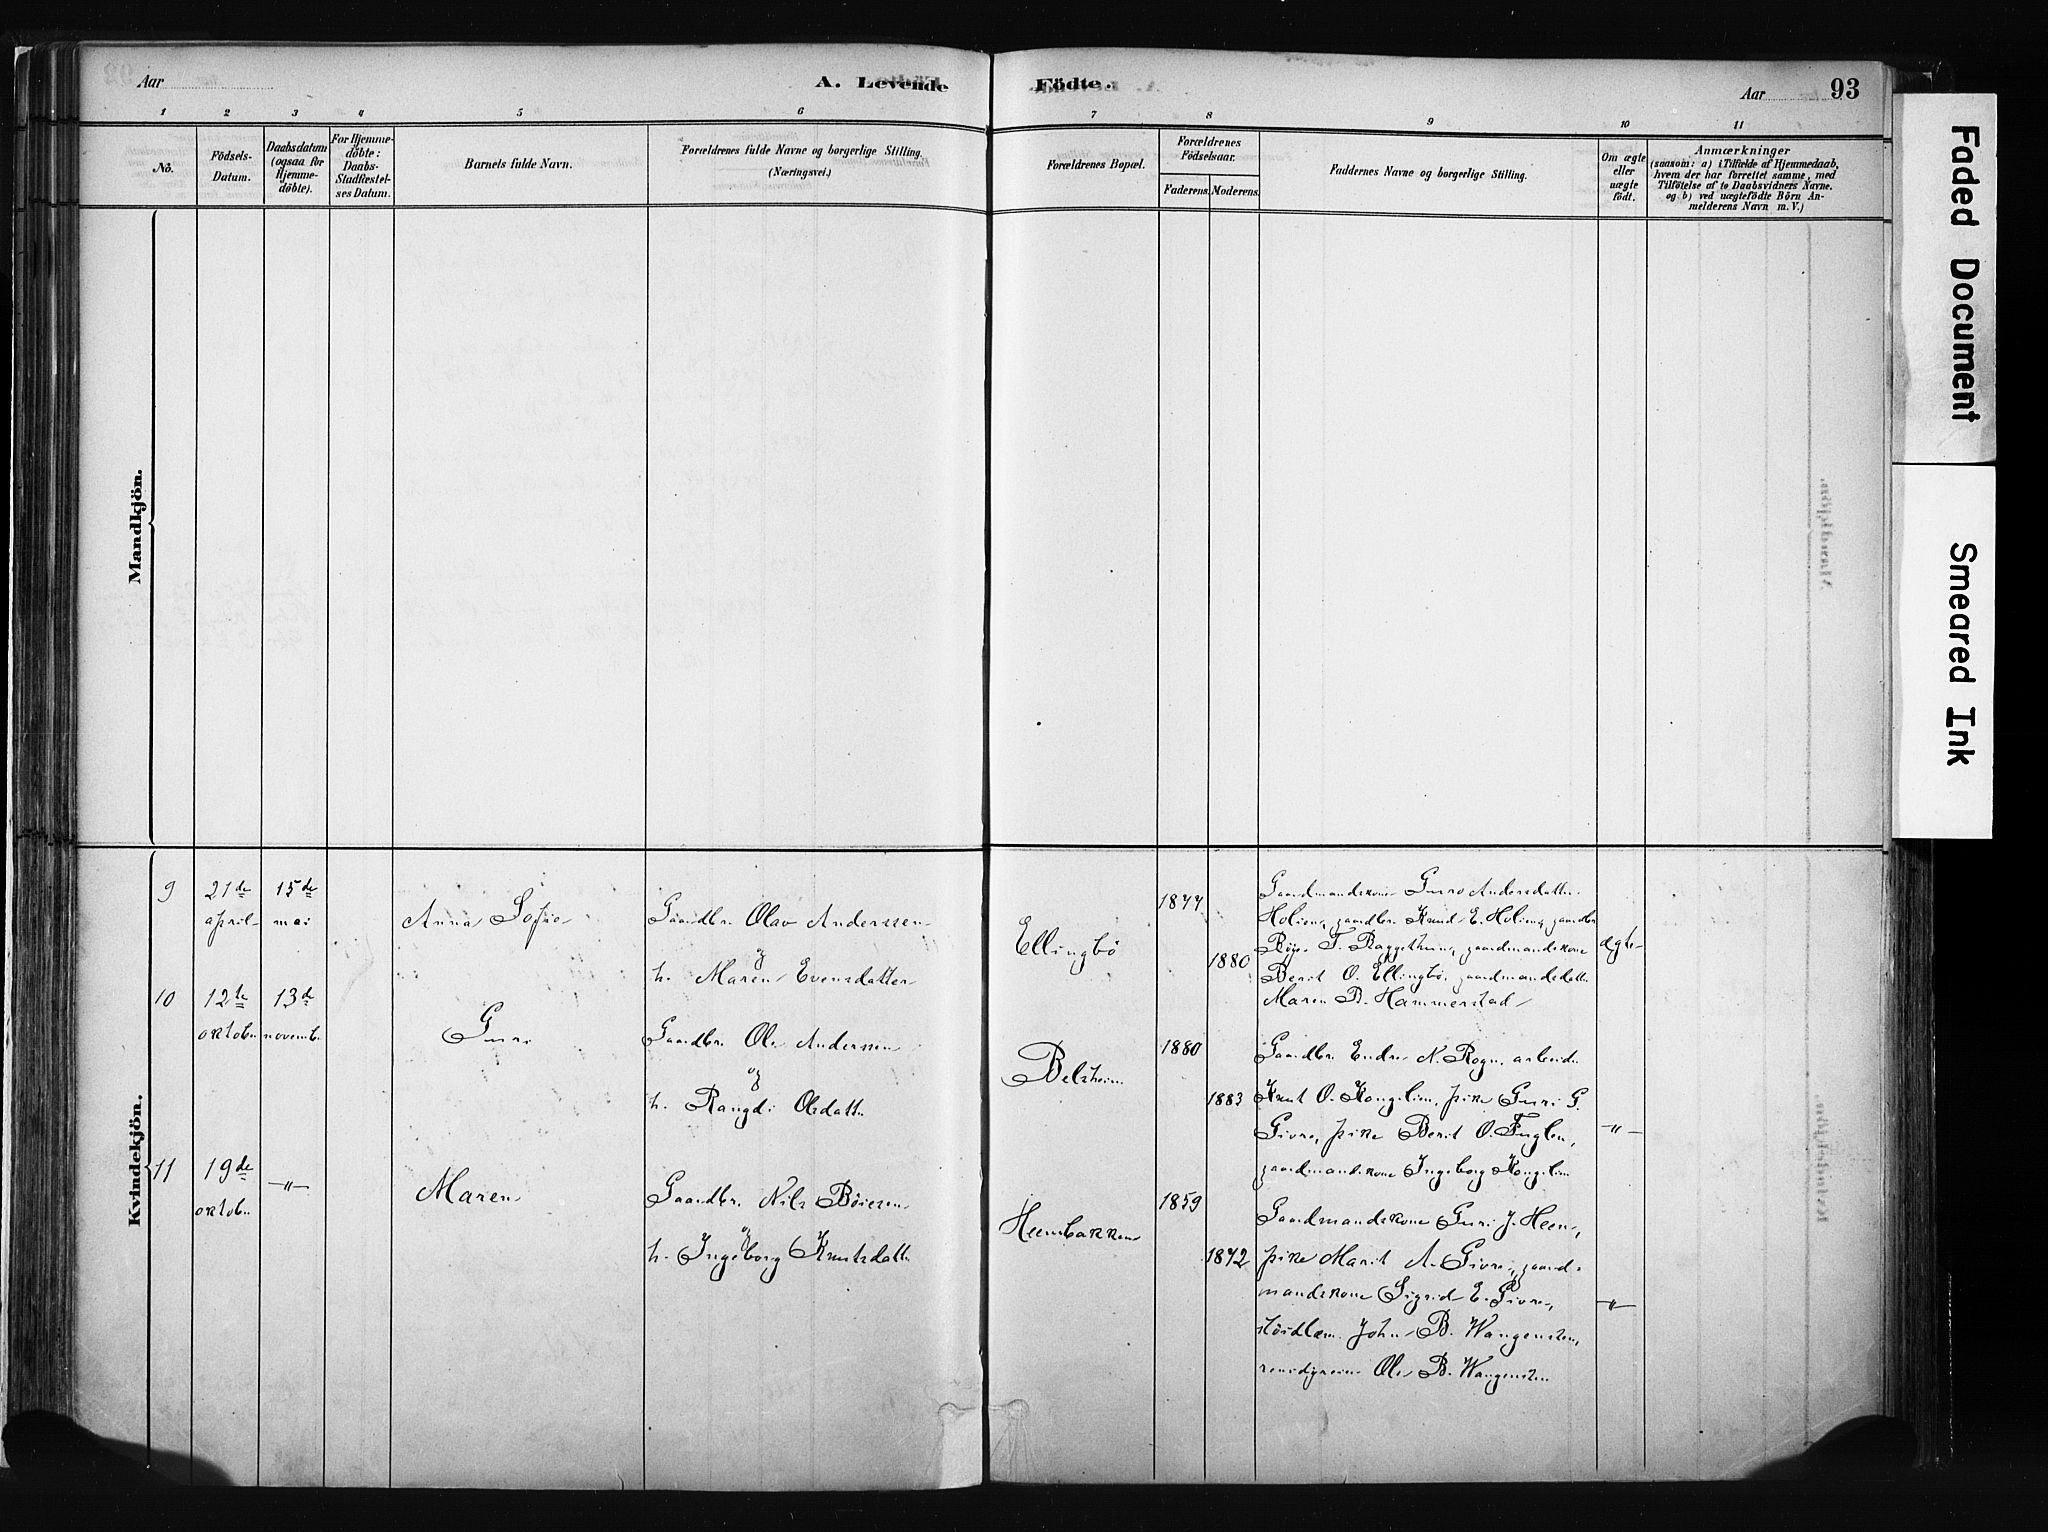 Aar
A. Levende
Födte.
Aar
93
1 2 3 4 5 6 7 8 9 10 11
No.
Födsels-
Datum.
Daabsdatum
(ogsaa for
Hjemme-
döbte).
For Hjemme-
döbte:
Daabs-
Stadfæstel-
ses Datum.
Barnets fulde Navn.
Forældrenes fulde Navne og borgerlige Stilling.
(Næringsvei.)
Forældrenes Bopæl.
Forældrenes
Födselsaar.
Faderens. Moderens.
Faddernes Navne og borgerlige Stilling.
Om ægte
eller
uægte
födt.
Anmærkninger
(saasom: a) i Tilfælde af Hjemmedaab,
hvem der har forrettet samme, med
Tilföielse af to Daabsvidners Navne.
og b) ved uægtefödte Börn An-
melderens Navn m.V.)
Mandkjön.
Kvindekjön.
9
21de
april
15de
mai
Anna Sofie
Gaardbr. Olav Anderssen
og
h. Maren Evensdatter
Ellingbö
1877
1880
Gaardmandskone Guro Andersdatter
Holien, gaardbr. Knud E. Holien, gaardbr.
Böye T. Baggethun, gaardmandskone
Berit O. Ellingbö, gaardmandsdatter
Maren B. Hammerstad
ægte
10
12te
oktober
13de
november
Guri
Gaardbr. Ole Anderssen
og
h. Rangdi Olsdatter
Belsheim
1880
1883
Gaardbr. Endre N. Rogn, arbeider
Knut O. Kongelien, pike Guri G.
Givre, pike Berit O. Fuglen,
gaardmandskone Ingeborg Kongelien
-"-
11
19de
oktober
-"-
Maren
Gaardbr. Nils Böiesen
og
h. Ingeborg Knutsdatter
Heenbakken
1859
1872
Gaardmandskone Guri J. Heen,
pike Marit A. Givre, gaard-
mandskone Sigrid E. Givre,
John B. Wangensten,
Ole B. Wangensten
-"-
Faded Document
Smeared Ink